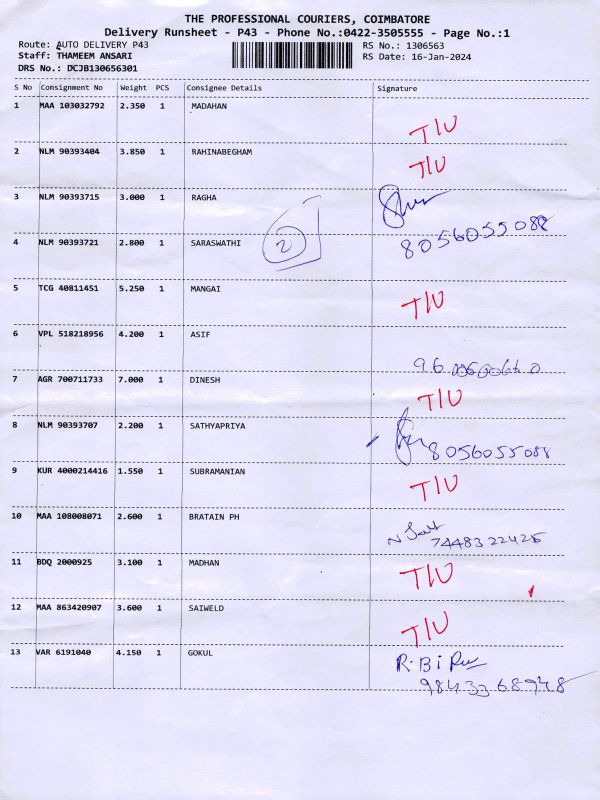 THE PROFESSIONAL COURIERS, COIMBATORE
Delivery Runsheet - P43 - Phone No.:0422-3505555 - Page No.:1
Route: AUTO DELIVERY P43 RS No.: 1306563
Staff: THAMEEM ANSARI RS Date: 16-Jan-2024
DRS No.: DCJB130656301
S No Consignment No Weight PCS Consignee Details Signature
1 MAA 103032792 2.350 1 MADAHAN T/U
2 NLM 90393404 3.850 1 RAHINABEGHAM T/U
3 NLM 90393715 3.000 1 RAGHA
8056055088
4 NLM 90393721 2.800 1 SARASWATHI 2
5 TCG 40811451 5.250 1 MANGAI T/U
6 VPL 518218956 4.200 1 ASIF
7 AGR 700711733 7.000 1 DINESH T/U
8 NLM 90393707 2.200 1 SATHYAPRIYA 8056055088
9 KUR 4000214416 1.550 1 SUBRAMANIAN T/U
10 MAA 108008071 2.600 1 BRATAIN PH
7448322425
11 BDQ 2000925 3.100 1 MADHAN T/U
12 MAA 863420907 3.600 1 SAIWELD T/U
13 VAR 6191040 4.150 1 GOKUL
9843368948